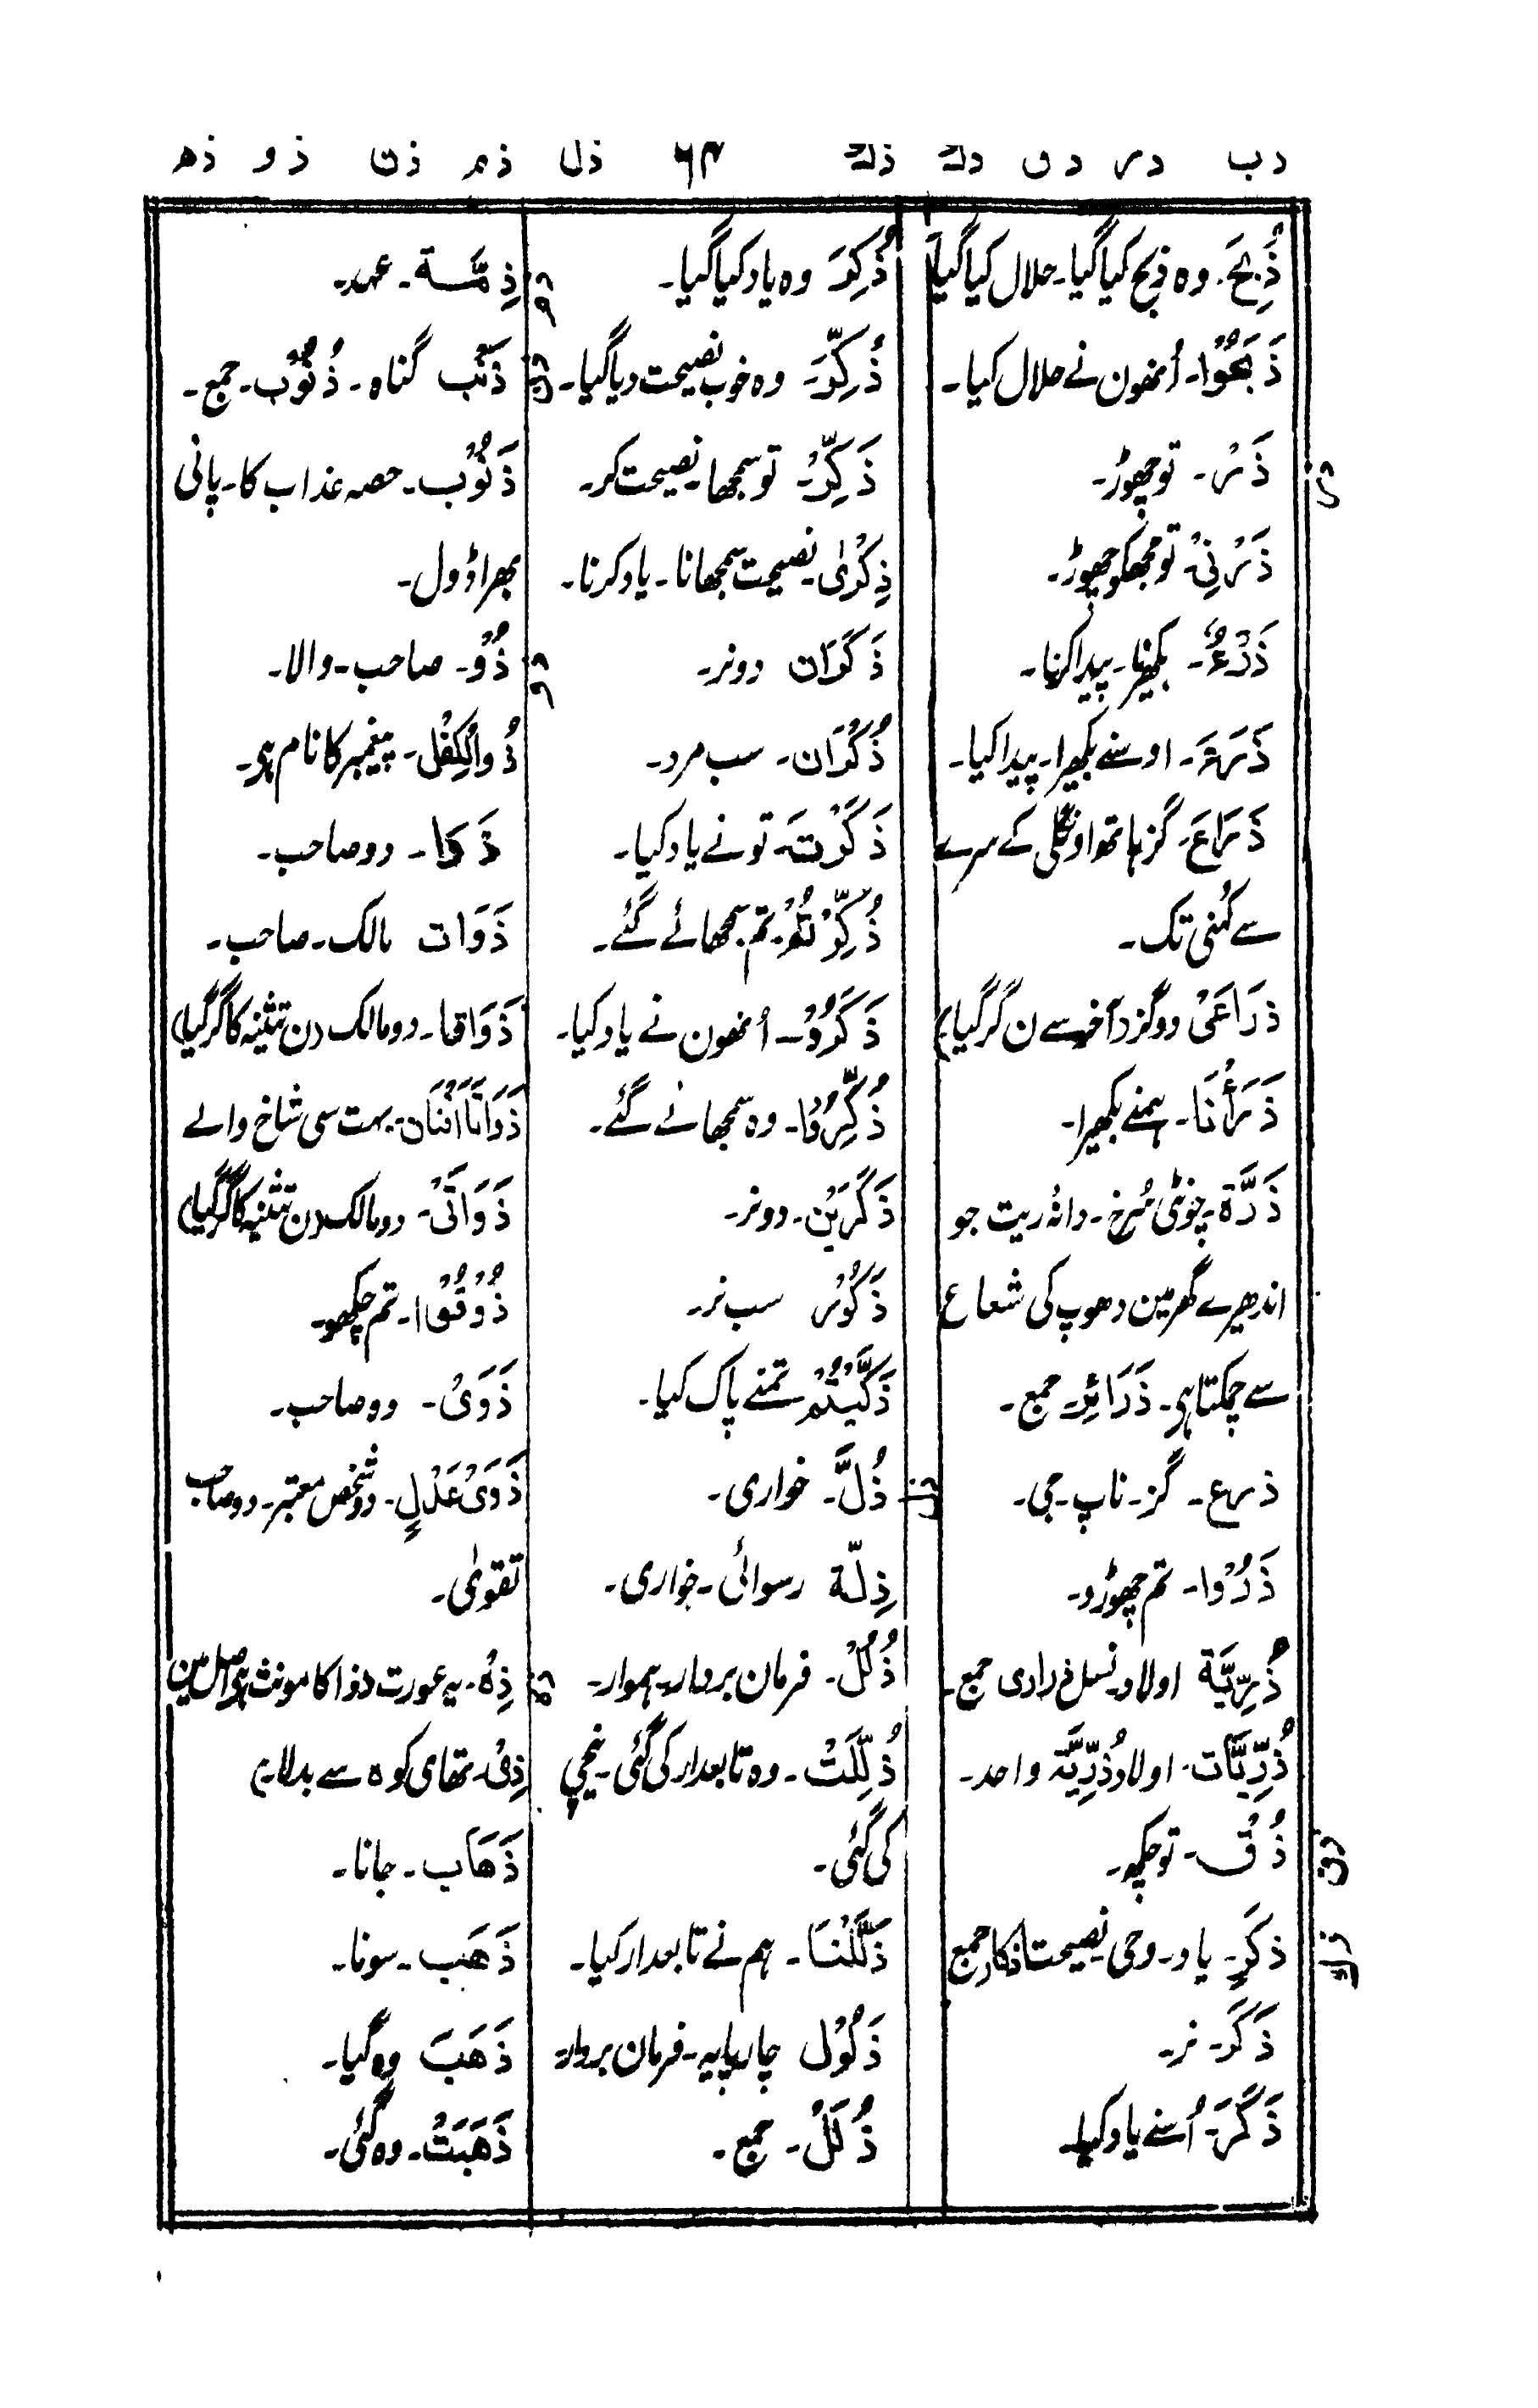 ذب ذر ذق ذك ذك ۶۴ ذل ذم ذن ذو ذھ
ذُبِحَ۔ وہ ذبح کیا گیا۔ حلال کیا گیا
ذَبَحُوْا۔ اُنھون نے حلال کیا۔
ذر
ذَرْ۔ تو چھوڑ۔
ذَرْنِیْ۔ تو مجھکو چھوڑ۔
ذَرْءٌ۔ بکھیرنا۔ پیدا کرنا۔
ذَرَءَ۔ اوسنے بکھیرا۔ پیدا کیا۔
ذَرَاعَ۔ گز ہاتھ اونگلی کے سرے
سے کُہنی تک۔
ذرَاعَیْ دو گز (آخر سے ن گر گیا)
ذَرَأْنَا۔ ہمنے بکھیرا۔
ذَرَّة۔ چونٹی سُرخ۔ دانۂ ریت جو
اندھیرے گھر مین دھوپ کی شعاع
سے چمکتا ہی۔ ذَرَائِر۔ جمع۔
ذرع۔ گز۔ ناپ۔ جی۔
ذَرُوْا۔ تم چھوڑو۔
ذُرِّیَّة اولاد۔ نسل ذراری جمع۔
ذُرِّیَّات۔ اولاد ذُرِّیَّة واحد۔
ذق
ذُقْ۔ تو چکھ۔
ذك
ذِکرٍ۔ یاد۔ وحی۔ نصیحت اذکار جمع
ذَکَر۔ نر۔
ذَکَرَ۔ اُسنے یاد کیا۔
ذُکِرَ وہ یاد کیا گیا۔
ذُکِّرَ۔ وہ خوب نصیحت دیا گیا۔
ذَکِّرْ۔ تو سمجھا۔ نصیحت کر۔
ذِکْرٰی۔ نصیحت سمجھانا۔ یاد کرنا۔
ذَکَرَان دو نر۔
ذُکْرَان۔ سب مرد۔
ذَکَرْتَ۔ تو نے یاد کیا۔
ذُکِّرْتُمْ۔ تم سمجھائے گئے۔
ذَکَرُوْا۔ اُنھون نے یاد کیا۔
ذُکِّرُوْا۔ وہ سمجھائے گئے۔
ذَکَرَیْن۔ دو نر۔
ذَکُوْر سب نر۔
ذَکَّیْتُمْ تمنے پاک کیا۔
ذل
ذُلَّ۔ خواری۔
ذِلّة رسوائی۔ خواری۔
ذُلُلْ۔ فرمان بردار۔ ہموار۔
ذُلِّلَتْ۔ وہ تابعدار کی گئی۔ نیچی
کی گئی۔
ذَلَّلْنَا۔ ہم نے تابعدار کیا۔
ذَلُوْل چارپایہ۔ فرمان بردار۔
ذُلُلْ۔ جمع۔
ذم
ذِمَّة۔ عہد۔
ذن
ذَنْب گناہ۔ ذُنُوْب۔ جمع۔
ذَنُوْب۔ حصہ عذاب کا۔ پانی
بھرا ڈول۔
ذو
ذُوْ۔ صاحب۔ والا۔
ذُوالْکِفْل۔ پیغمبر کا نام ہی۔
ذَوَا۔ دو صاحب۔
ذَوَات مالک۔ صاحب۔
ذَوَاتا۔ دو مالک (ن تثنیہ کا گر گیا)
ذَوَاتَا اَفْنَان۔ بہت سی شاخ والے
ذَوَاتَیْ۔ دو مالک (ن تثنیہ کا گر گیا)
ذُوْقُوْا۔ تم چکھو۔
ذَوَیْ۔ دو صاحب۔
ذَوَیْ عَدْلٍ۔ دو شخص معتبر۔ دو صاحب
تقویٰ۔
ذھ
ذِہْ۔ یہ عورت (ذا کا مونث ہی اصل مین
ذِیْ۔ تھا ی کو ہ سے بدلا ہی)
ذَھَاب۔ جانا۔
ذَھَب۔ سونا۔
ذَھَبَ وہ گیا۔
ذَھَبَتْ۔ وہ گئی۔